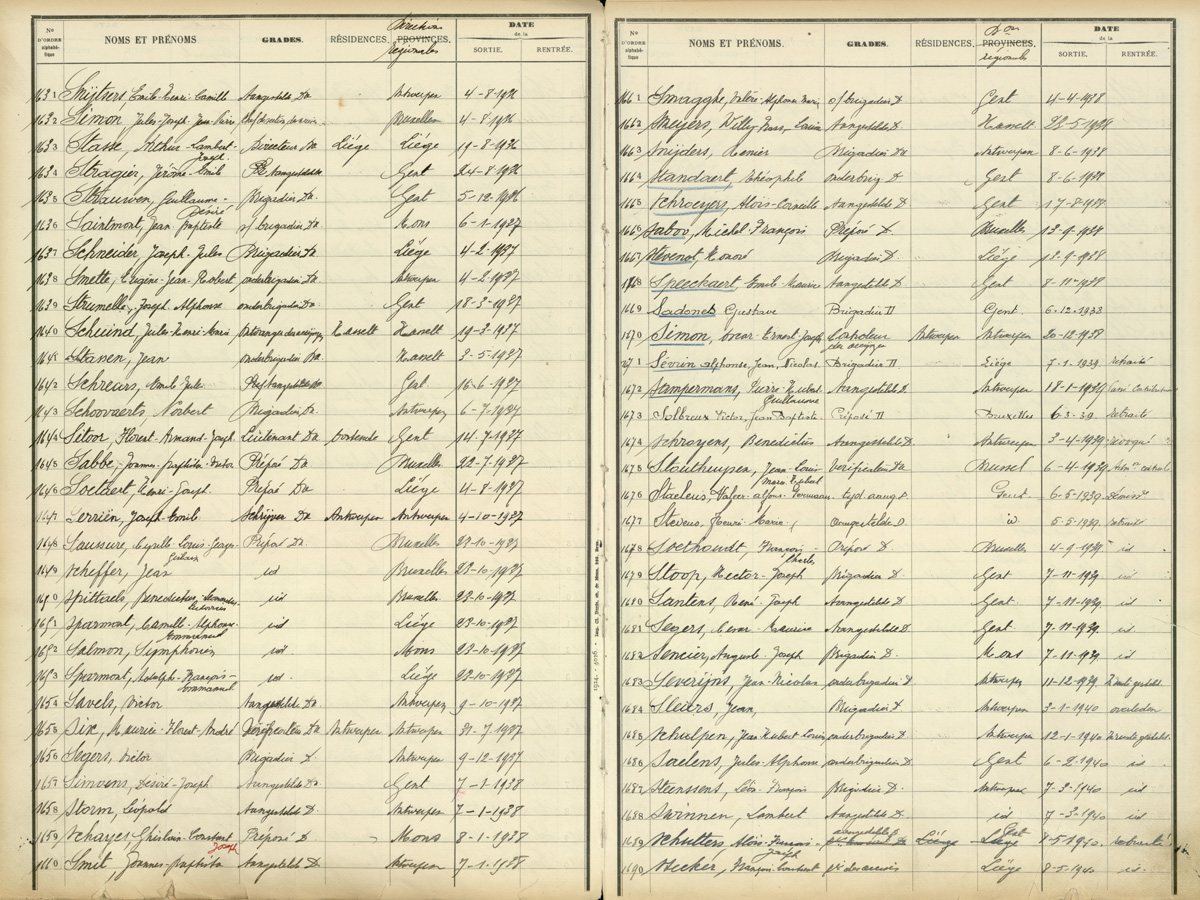 N° D'ORDRE alphabétique NOMS ET PRÉNOMS. GRADES. RÉSIDENCES. Direction PROVINCES. régionales DATE de la SORTIE. RENTRÉE.
1631 Snijders, Emile-Henri-Camille Aangestelde Dn Antwerpen 4-8-1936
1632 Simon, Jules-Joseph, Jean-Marie Bruxelles 4-8-1936
1633 Stasse, Arthur-Lambert-Joseph. Directeur Dn Liége Liége 19-8-1936
1634 Stragier, Jérôme-Emile Gent 24-8-1936
1635 Strauwen, Guillaume-Désiré Brigadier Dn Gent 5-12-1936
1636 Saintmont, Jean Baptiste s/brigadier Dn Mons 6-1-1937
1637 Schneider, Joseph-Jules Brigadier Dn Liége 4-2-1937
1638 Smette, Eugène-Jean-Robert onderbrigadier Dn Antwerpen 4-2-1937
1639 Strumelle, Joseph, Alphonse onderbrigadier Dn Gent 18-3-1937
1640 Schuind, Jules-Henri-Marie Hasselt Hasselt 19-3-1937
1641 Stassen, Jean onderbrigadier Dn. Hasselt 3-5-1937
1642 Schreurs, Emile Jules Gent 16-6-1937
1643 Schoovaerts Norbert Brigadier Dn. Antwerpen 6-7-1937
1644 Sitoor, Florent-Armand-Joseph Lieutenant Dn Oostende Gent 14-7-1937
1645 Sabbe, Joannes-Baptista-Victor Préposé Dn Bruxelles 22-7-1937
1646 Soetaert, Henri-Joseph. Préposé Dn Liége 4-8-1937
1647 Serrien, Joseph-Emile Schrijver Dn Antwerpen Antwerpen 4-10-1937
1648 Saussure, Cyrille-Louis-Georges Préposé Dn. Bruxelles 23-10-1937
1649 Scheffer, Jean id Bruxelles 23-10-1937
1650 Spittaels, Benedictus id Bruxelles 23-10-1937
1651 Sparmont, Camille-Alphonse-Emmanuel id Liége 23-10-1937
1652 Salmon, Symphorien id Mons 23-10-1937
1653 Spermont, Adolph-François-Emmanuel id. Liége 23-10-1937
1654 Savels, Victor Aangestelde Dn Antwerpen 9-10-1937
1655 Six, Maurice-Florent-André Antwerpen Antwerpen 31-7-1937
1656 Segers, Victor Brigadier D. Antwerpen 9-12-1937
1657 Simoens, Désiré-Joseph Aangestelde D. Gent 7-1-1938
1658 Storm, Léopold Aangestelde D. Antwerpen 7-1-1938
1659 Schayes, Ghislain-Constant Joseph Préposé D. Mons 8-1-1938
1660 Smit, Joannes-Baptista Aangestelde D. Antwerpen 7-1-1938
1924. - 4026.
N° D'ORDRE alphabétique NOMS ET PRÉNOMS. GRADES. RÉSIDENCES. Don PROVINCES. régionales DATE de la SORTIE. RENTRÉE.
1661 Smagghe, Valère, Alphonse Marie, s/brigadier D. Gent 4-4-1938
1662 Meijers, Willy Aangestelde D. Hasselt 28-5-1938
1663 Snijders, Renier Brigadier Dn Antwerpen 8-6-1938
1664 Standaert, Théophile onderbrig. D Gent 8-6-1938
1665 Schroeyers, Alois-Corneille Aangestelde D. Gent 17-8-1938
1666 Sabov, Michel-François Préposé D. Bruxelles 12-9-1938
1667 Stévenot, Honoré Brigadier D. Liége 12-9-1938
1668 Speeckaert, Emile-Maurice Aangestelde D. Gent 8-11-1938
1669 Sadones Gustave Brigadier D Gent. 6.12.1938
1670 Simon, Oscar-Ernest-Joseph Contrôleur des accises Antwerpen Antwerpen 20-12-1938
1671 Sevrin Alphonse, Jean, Nicolas Brigadier D Liége 7.1.1939 retraité
1672 Stampermans, Pierre Hubert Guillaume Aangestelde D. Antwerpen 18-1-1939
1673 Solbreux Victor, Jean Baptiste Préposé D Bruxelles 6.3.39 Retraite
1674 Schroyens, Benedictus Aangestelde D. Antwerpen 3-4-1939 révoqué
1675 Stouthuysen, Jean Louis Marie Hubert Verificateur Dn Brussel 6-4-1939 Adm. centrale
1676 Staeleus, Germaan tijd. aang. D Gent 6-5-1939
1677 Stevens, Henri Marie aangestelde D. id 5-5-1939. retraite
1678 Soethoudt, François-Charles Préposé D. Bruxelles 4-9-1939 id
1679 Stoop, Hector-Joseph Brigadier D. Gent 7-11-1939 id
1680 Santens, René-Joseph Aangestelde D. Gent. 7-11-1939. id.
1681 Segers, Cesar-Maurice Aangestelde D. Gent 7.11-1939. id.
1682 Sencier, Auguste-Joseph Brigadier D. Mons 7-11-1939. id
1683 Severijns, Jean-Nicolas onderbrigadier D. Antwerpen 11-12-1939
1684 Sleurs, Jean, Brigadier D. Antwerpen 3-1-1940 overleden
1685 Schulpen, Jean-Hubert-Louis onderbrigadier D. Antwerpen 12-1-1940
1686 Saelens, Jules-Alphonse onderbrigadier D. Gent 6-2-1940 id.
1687 Steenssens, Léon-François Brigadier D. Antwerpen 7-3-1940 id
1688 Swinnen, Lambert Aangestelde D. id 7-3-1940 id.
1689 Schutters, Alois-François-Joseph aangestelde D. Liége Gent Liége 8-5-1940.
1690 Stecker, François-Constant Liége 8-5-1940 id.